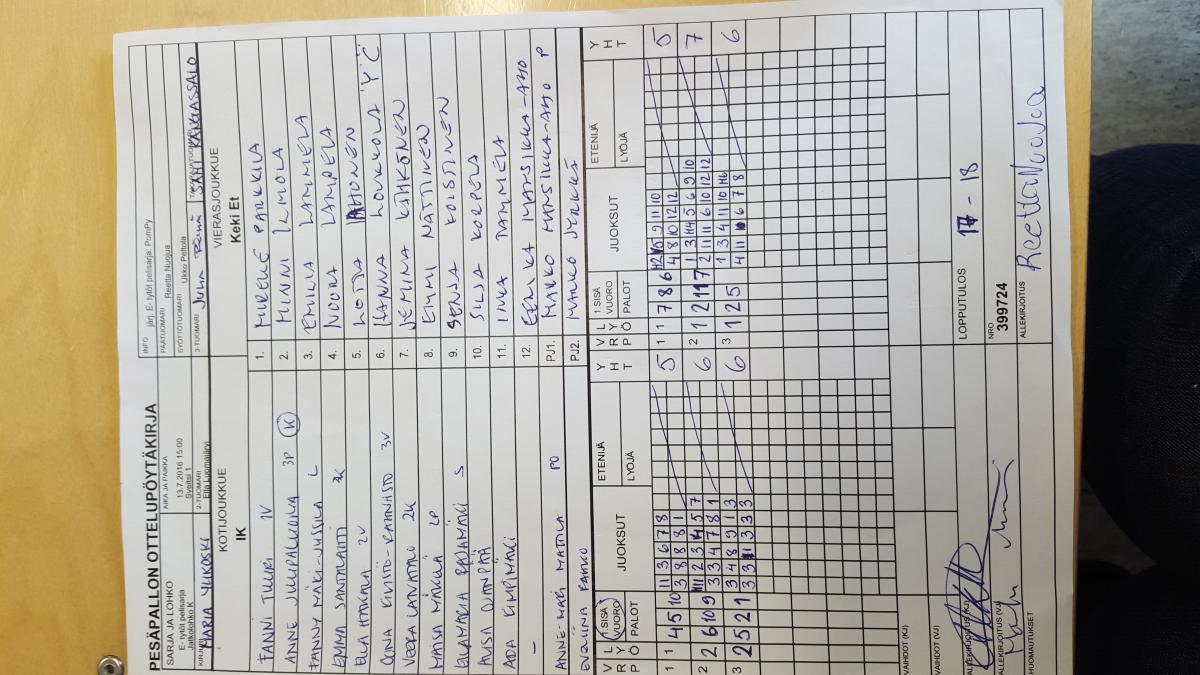 PESÄPALLON OTTELUPÖYTÄKIRJA
INFO järj. E- tytöt pelisarja: PomPy
SARJA JA LOHKO
E- tytöt pelisarja
Jatkolohko K
AIKA JA PAIKKA
13.7.2016 15:00
Sveitsi 1
PÄÄTUOMARI Reetta Nuojua
SYÖTTÖTUOMARI Ukko Peltola
KIRJURI MARIA YLIKOSKI
2-TUOMARI
Ella Luomajärvi
3-TUOMARI Juha
KOTIJOUKKUE
IK
VIERASJOUKKUE
Keki Et
FANNI TUURI 1V
1. MIRELLE PARKKILA
ANNE JUUPALUOMA 3P K
2. MINNI ILMOLA
FANNY MÄKI-JUSSILA L
3. EMILIA LAMMELA
EMMA SANTALAHTI 3K
4. NOORA LAMPELA
ELLA HAKALA 2V
5. LOTTA AHONEN
OONA KIVISTÖ-RAHNASTO 3V
6. HANNA LOUKKOLA Y C
VEERA LATVATALO 2K
7. JEMINA KÄHKÖNEN
MAISA MÄKELÄ 2P
8. EMMI NÄTTINEN
ELLAMARIA RAJAMÄKI S
9. SENJA KOISTINEN
ALISA OJANPÄÄ
10. SILJA KORPELA
ADA KIMPIMÄKI
11. INKA TAMMELA
–
12. EELI MANSIKKA-AHO
ANNE-MARI MATTILA PO
PJ1. MARKO MANSIKKA-AHO P
EVELIINA
PJ2. MARKO JYRKKÄ
VRP LYÖ 1.SISÄ VUORO PALOT JUOKSUT ETENIJÄ LYÖJÄ YHT
VRP LYÖ 1.SISÄ VUORO PALOT JUOKSUT ETENIJÄ LYÖJÄ YHT
1 1 4 5 10 11 3 6 7 8 5
3 8 8 8 1
1 1 7 8 6 5 9 11 10 5
4 8 10 12 12
2 2 6 10 9 11 2 3 4 5 7 6
3 3 4 7 8 1
2 1 2 11 7 1 3 4 5 6 9 10 7
2 11 11 6 10 12 12
3 2 5 2 1 3 4 8 9 1 3 6
3 3 3 3 3
3 1 2 5 1 3 4 11 10 6
4 11 6 7 8
VAIHDOT (KJ)
VAIHDOT (VJ)
ALLEKIRJOITUS (KJ)
LOPPUTULOS 17 - 18
ALLEKIRJOITUS (VJ)
NRO
399724
HUOMAUTUKSET
ALLEKIRJOITUS Reetta Nuojua